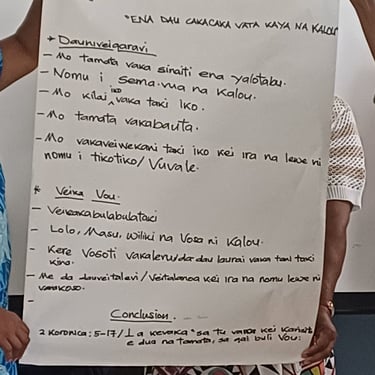 "ENA DAU CAKACAKA VATA KAYA NA KALOU"
* Dauniveiqaravi
- Mo tamata vaka sinaiti ena yalotabu.
- Nomu i sema.ma na Kalou.
- Mo kilai iko vaka taki iko.
- Mo tamata vakabauta.
- Mo vakaveiwekani taki iko kei ira na lewe ni
nomu i tikotiko/Vuvale.
* Veika Vou.
- Veivakabulabulataki
- Lolo, Masu, wiliki na Vosa ni Kalou.
- Kere Vosoti vakaleru/da dau burai vaka tani taki
kina.
- Me da dauveitalavi/Veitalanoa kei ira na nomu lewe ni
vavakoso.
-
Conclusion.
2 Koronica: 5-17/ La kevaka "sa tu vata kei Karisito
e dua na tamata, sa qai buli Vou: